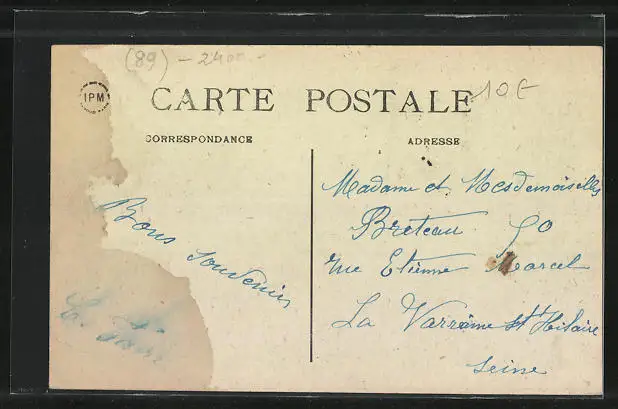 (89) - 2400 -
10€
IPM
CARTE POSTALE
CORRESPONDANCE
ADRESSE
Bons souvenirs
Madame et Mesdemoiselles
Breteau 50
rue Etienne Marcel
La Varenne St Hilaire
Seine